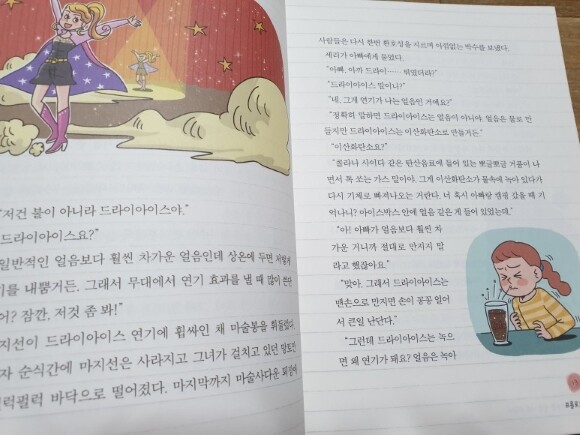 "저건 불이 아니라 드라이아이스야."
드라이아이스요?"
일반적인 얼음보다 훨씬 차가운 얼음인데 상온에 두면 저렇게
기를 내뿜거든. 그래서 무대에서 연기 효과를 낼 때 많이 쓴단
어? 잠깐, 저것 좀 봐!"
지선이 드라이아이스 연기에 휩싸인 채 마술봉을 휘둘렀다.
자 순식간에 마지선은 사라지고 그녀가 걸치고 있던 망토만
럭펄럭 바닥으로 떨어졌다. 마지막까지 마술사다운
사람들은 다시 한번 환호성을 지르며 아낌없는 박수를 보냈다.
세리가 아빠에게 물었다.
"아빠, 아까 드라이…… 뭐였더라?"
"드라이아이스 말이니?"
"네, 그게 연기가 나는 얼음인 거예요?"
"정확히 말하면 드라이아이스는 얼음이 아니야. 얼음은 물로 만
들지만 드라이아이스는 이산화탄소로 만들거든."
"이산화탄소요?"
"콜라나 사이다 같은 탄산음료에 들어 있는 뽀글뽀글 거품이 나
면서 톡 쏘는 가스 말이야. 그게 이산화탄소가 물속에 녹아 있다가
다시 기체로 빠져나오는 거란다. 너 혹시 아빠랑 캠핑 갔을 때 기
억나니? 아이스박스 안에 얼음 같은 게 들어 있었는데."
"아! 아빠가 얼음보다 훨씬 차
가운 거니까 절대로 만지지 말
라고 했잖아요."
"맞아. 그래서 드라이아이스는
맨손으로 만지면 손이 꽁꽁 얼어
서 큰일 난단다."
"그런데 드라이아이스는 녹으
면 왜 연기가 돼요? 얼음은 녹아